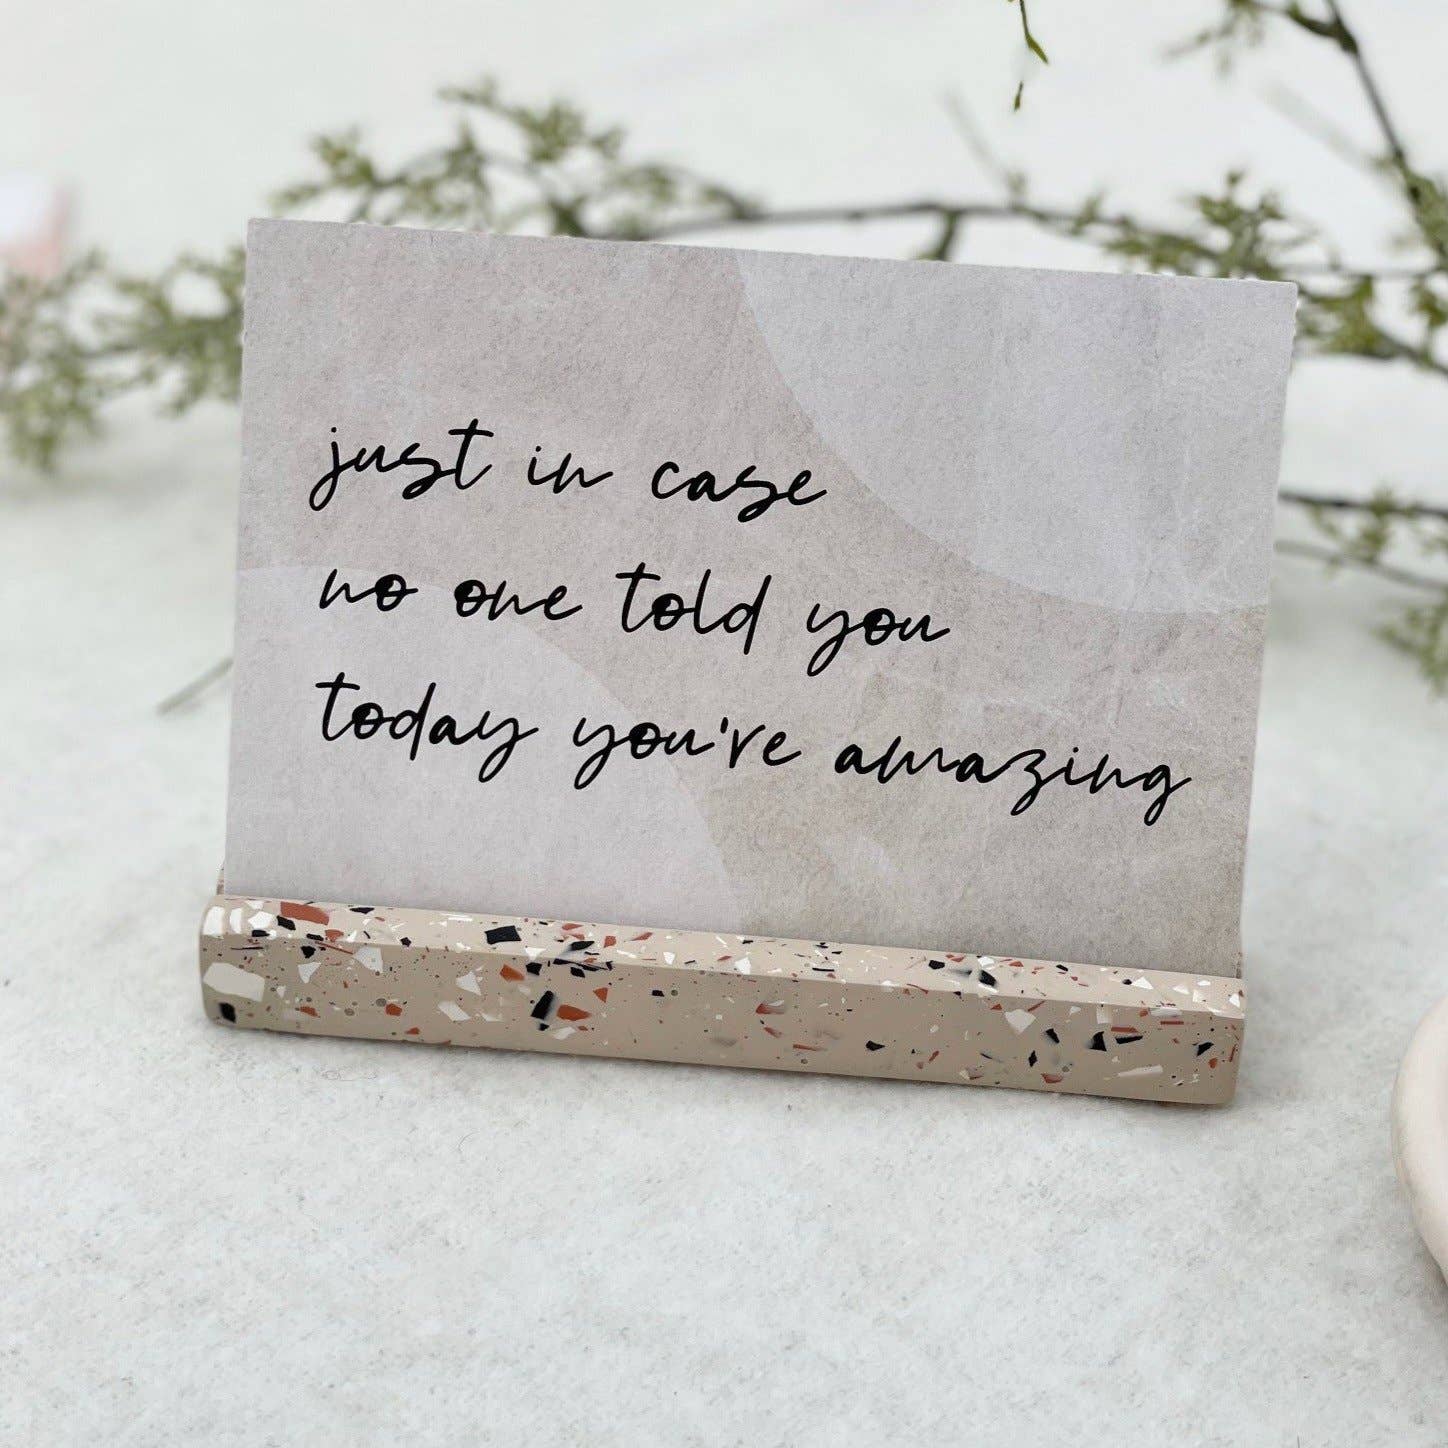 just in case
no one told you
today you're amazing